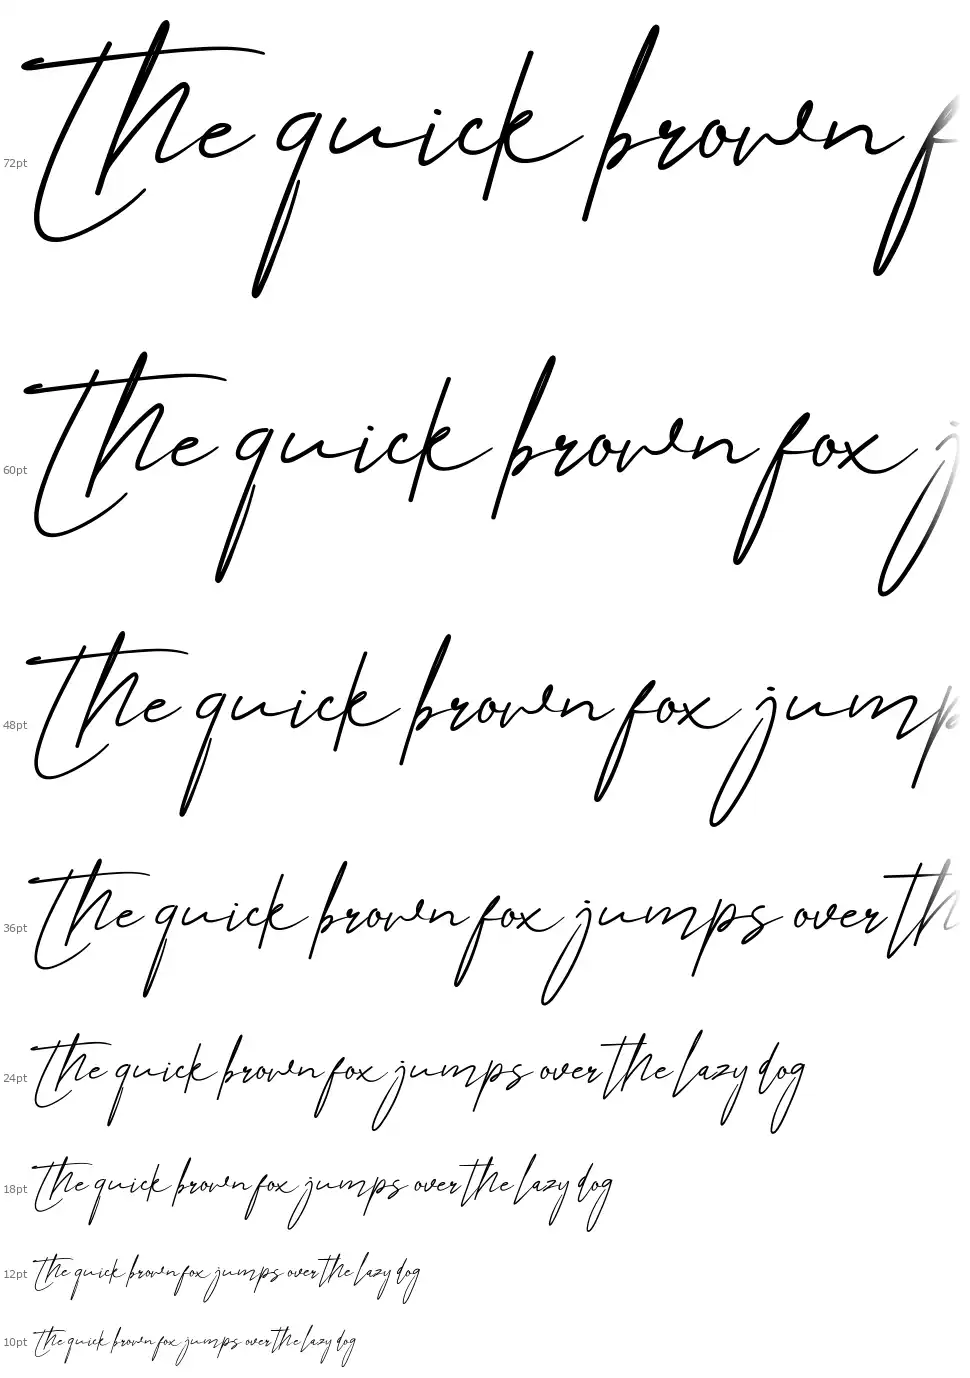 72pt the quick brown f
60pt the quick brown fox j
48pt the quick brown fox jump
36pt the quick brown fox jumps over th
24pt the quick brown fox jumps over the lazy dog
18pt the quick brown fox jumps over the lazy dog
12pt the quick brown fox jumps over the lazy dog
10pt the quick brown fox jumps over the lazy dog